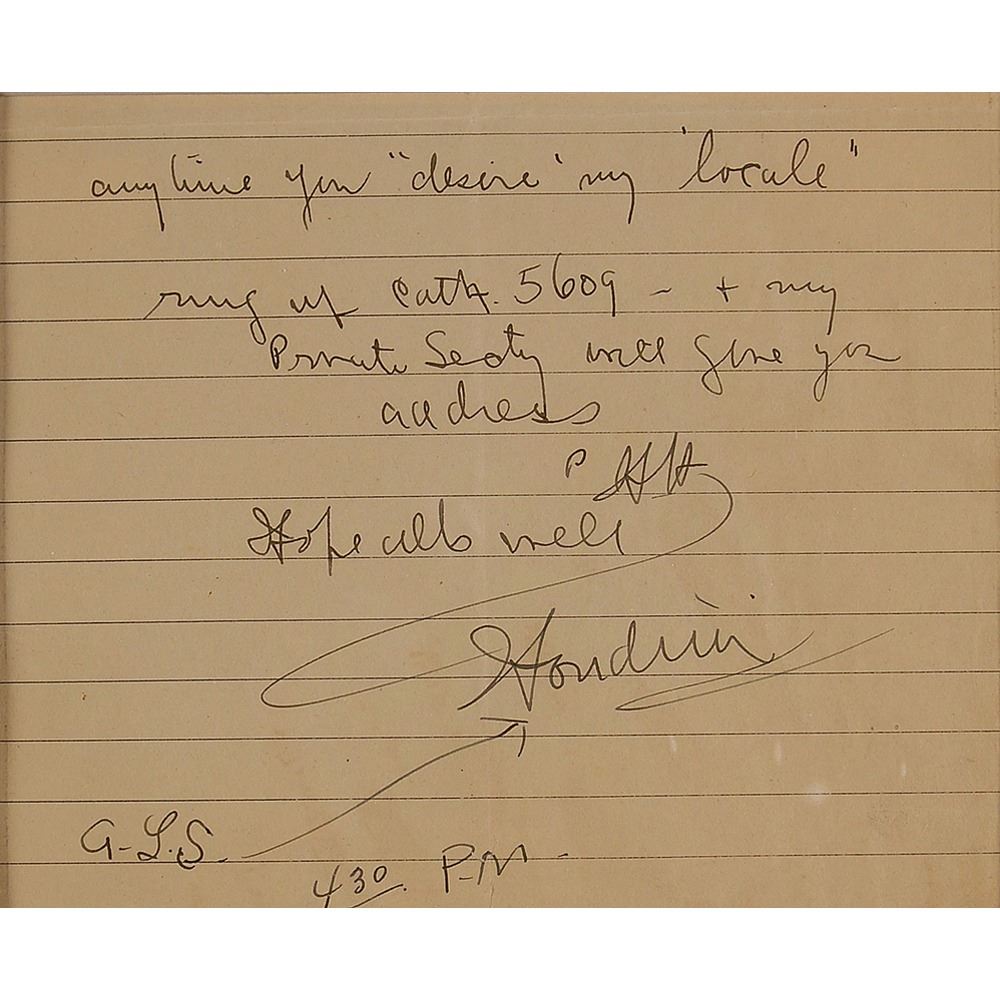 anytime you "desire" my "locale"
ring up Cath. 5609 - + my
Private Secty will give you
address
HH
Hope alls well
Houdini
G.L.S.
430. P-M -